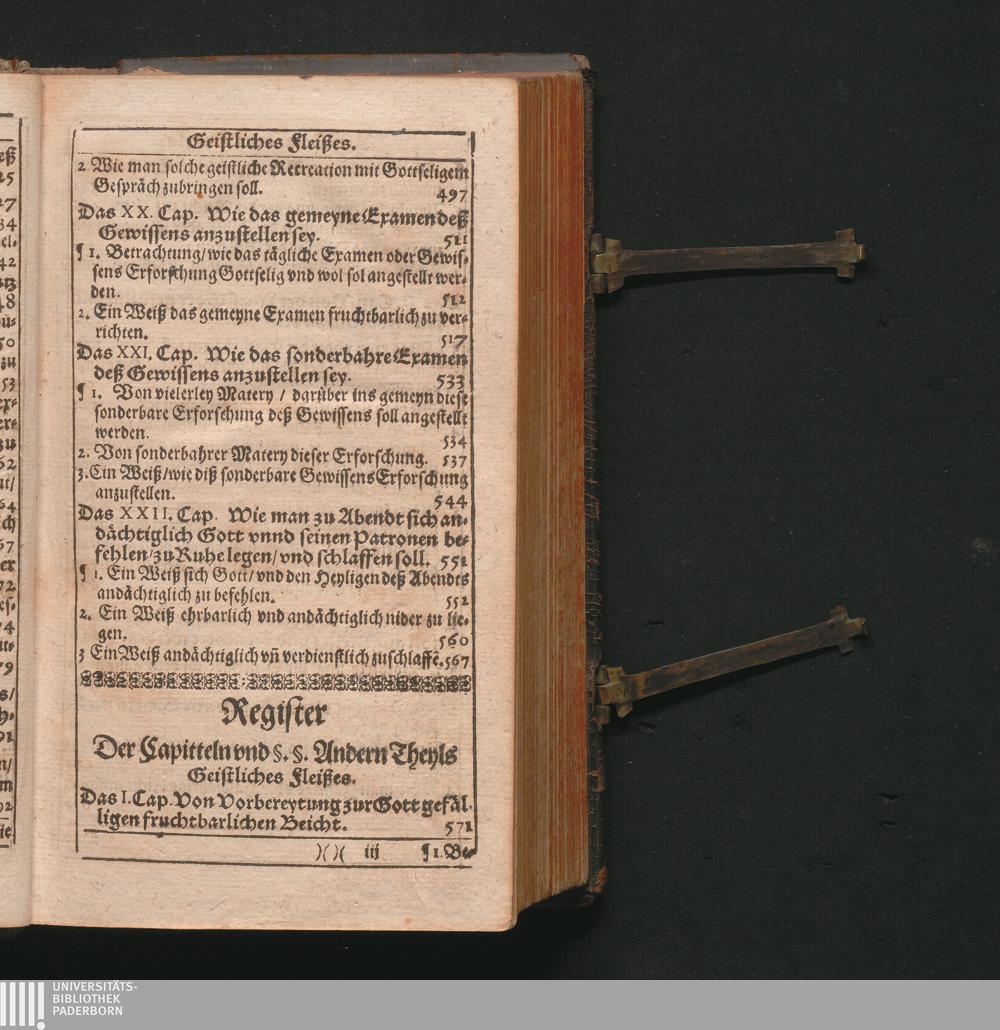 Geistliches Fleißes.
2. Wie man solche geistliche Recreation mit Gottseligem
Gespräch zubringen soll. 497
Das XX. Cap. Wie das gemeyne Examen deß
Gewissens anzustellen sey. 511
¶ 1. Betrachtung/ wie das tägliche Examen oder Gewis-
sens Erforschung Gottselig vnd wol sol angestellt wer-
den. 512
2. Ein Weiß das gemeyne Examen fruchtbarlich zu ver-
richten. 517
Das XXI. Cap. Wie das sonderbahre Examen
deß Gewissens anzustellen sey. 533
¶ 1. Von vielerley Matery / darüber ins gemeyn diese
sonderbare Erforschung deß Gewissens soll angestellt
werden. 534
2. Von sonderbahrer Matery dieser Erforschung. 537
3. Ein Weiß/ wie diß sonderbare Gewissens Erforschung
anzustellen. 544
Das XXII. Cap. Wie man zu Abendt sich an-
dächtiglich Gott vnnd seinen Patronen be-
fehlen/ zu Ruhe legen/ vnd schlaffen soll. 551
¶ 1. Ein Weiß sich Gott/ vnd den Heyligen deß Abendts
andächtiglich zu befehlen. 552
2. Ein Weiß ehrbarlich vnd andächtiglich nider zu lie-
gen. 560
3 Ein Weiß andächtiglich vñ verdienstlich zuschlaffē. 567
Register
Der Capitteln vnd §. §. Andern Theyls
Geistliches Fleißes.
Das I. Cap. Von Vorbereytung zur Gott gefäl-
ligen fruchtbarlichen Beicht. 571
)( )( iij ¶ 1. Be-
UNIVERSITÄTS-
BIBLIOTHEK
PADERBORN